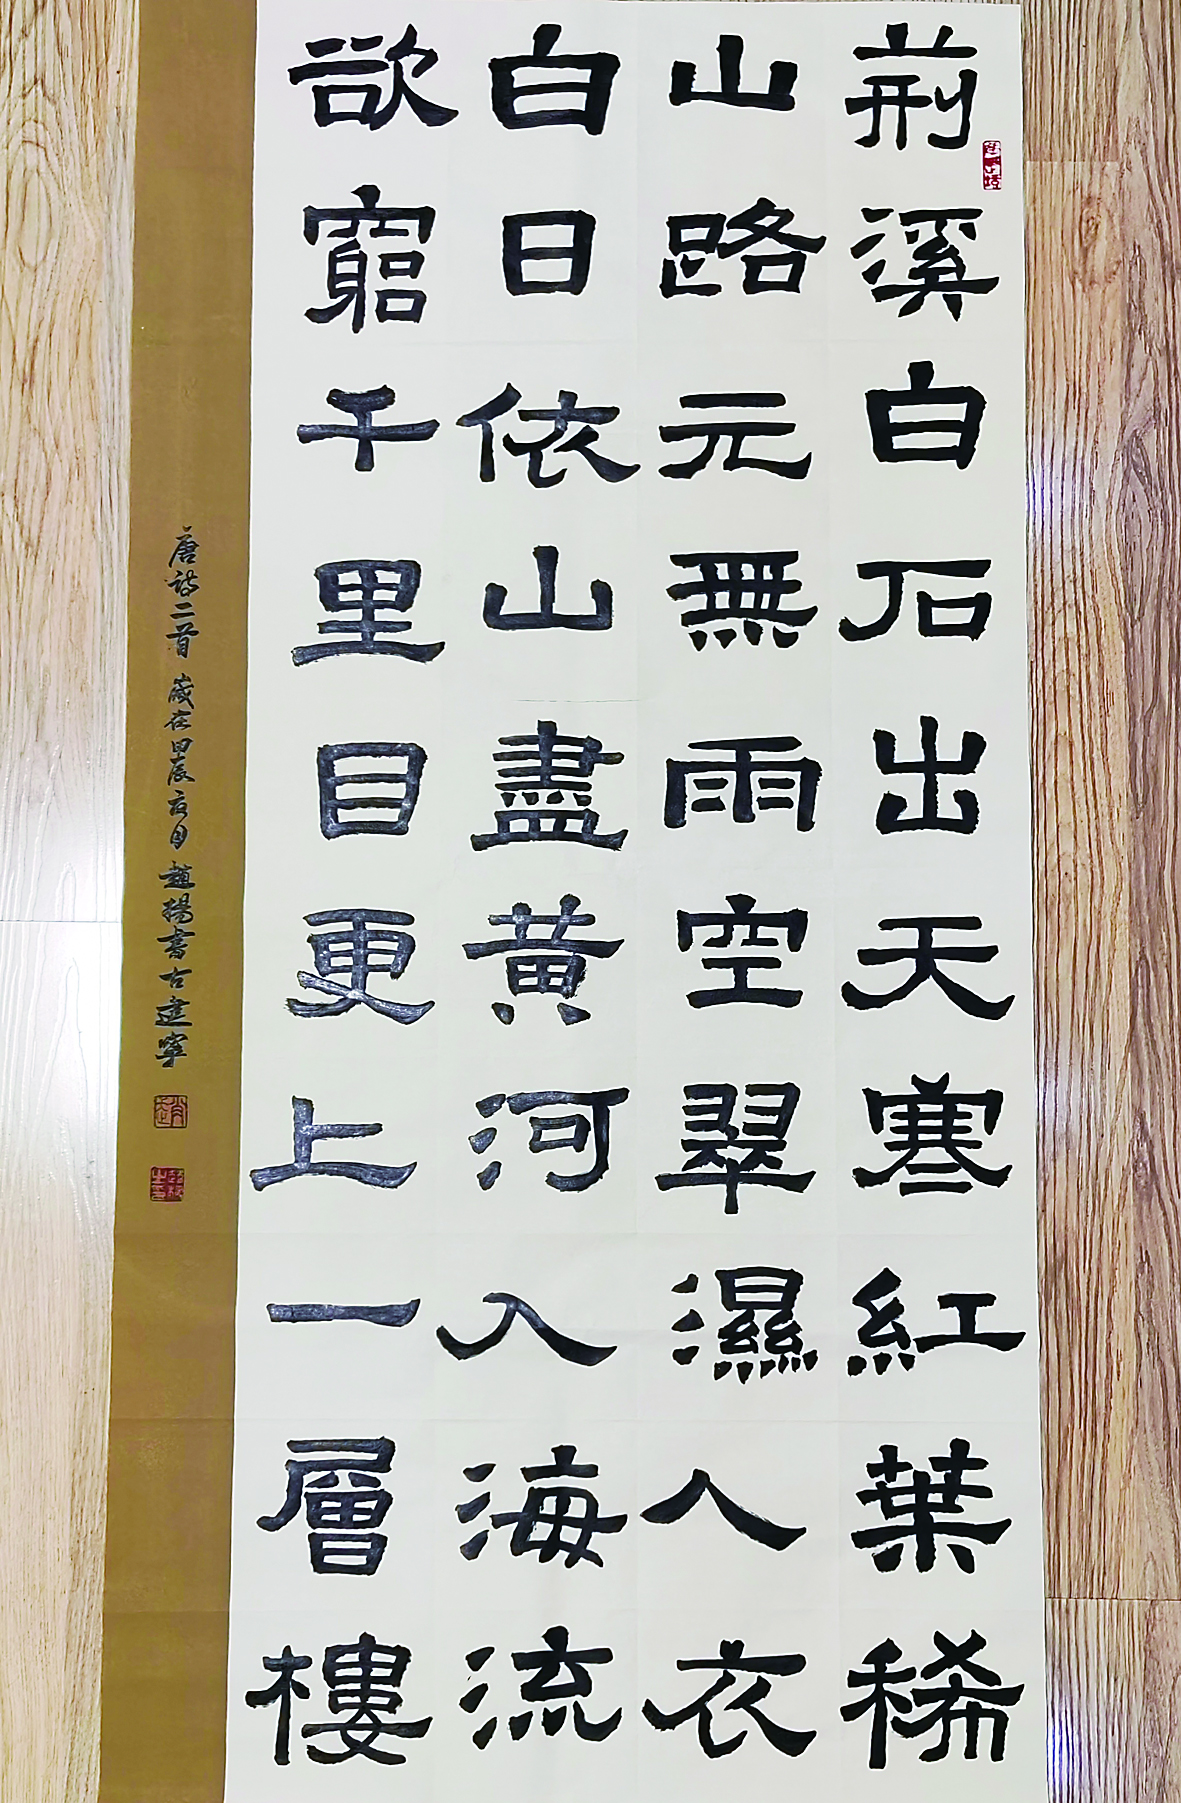 荊溪白石出天寒紅葉稀
山路元無雨空翠濕人衣
白日依山盡黃河入海流
欲窮千里目更上一層樓
唐詩二首 歲在甲辰 趙揚書古建寧